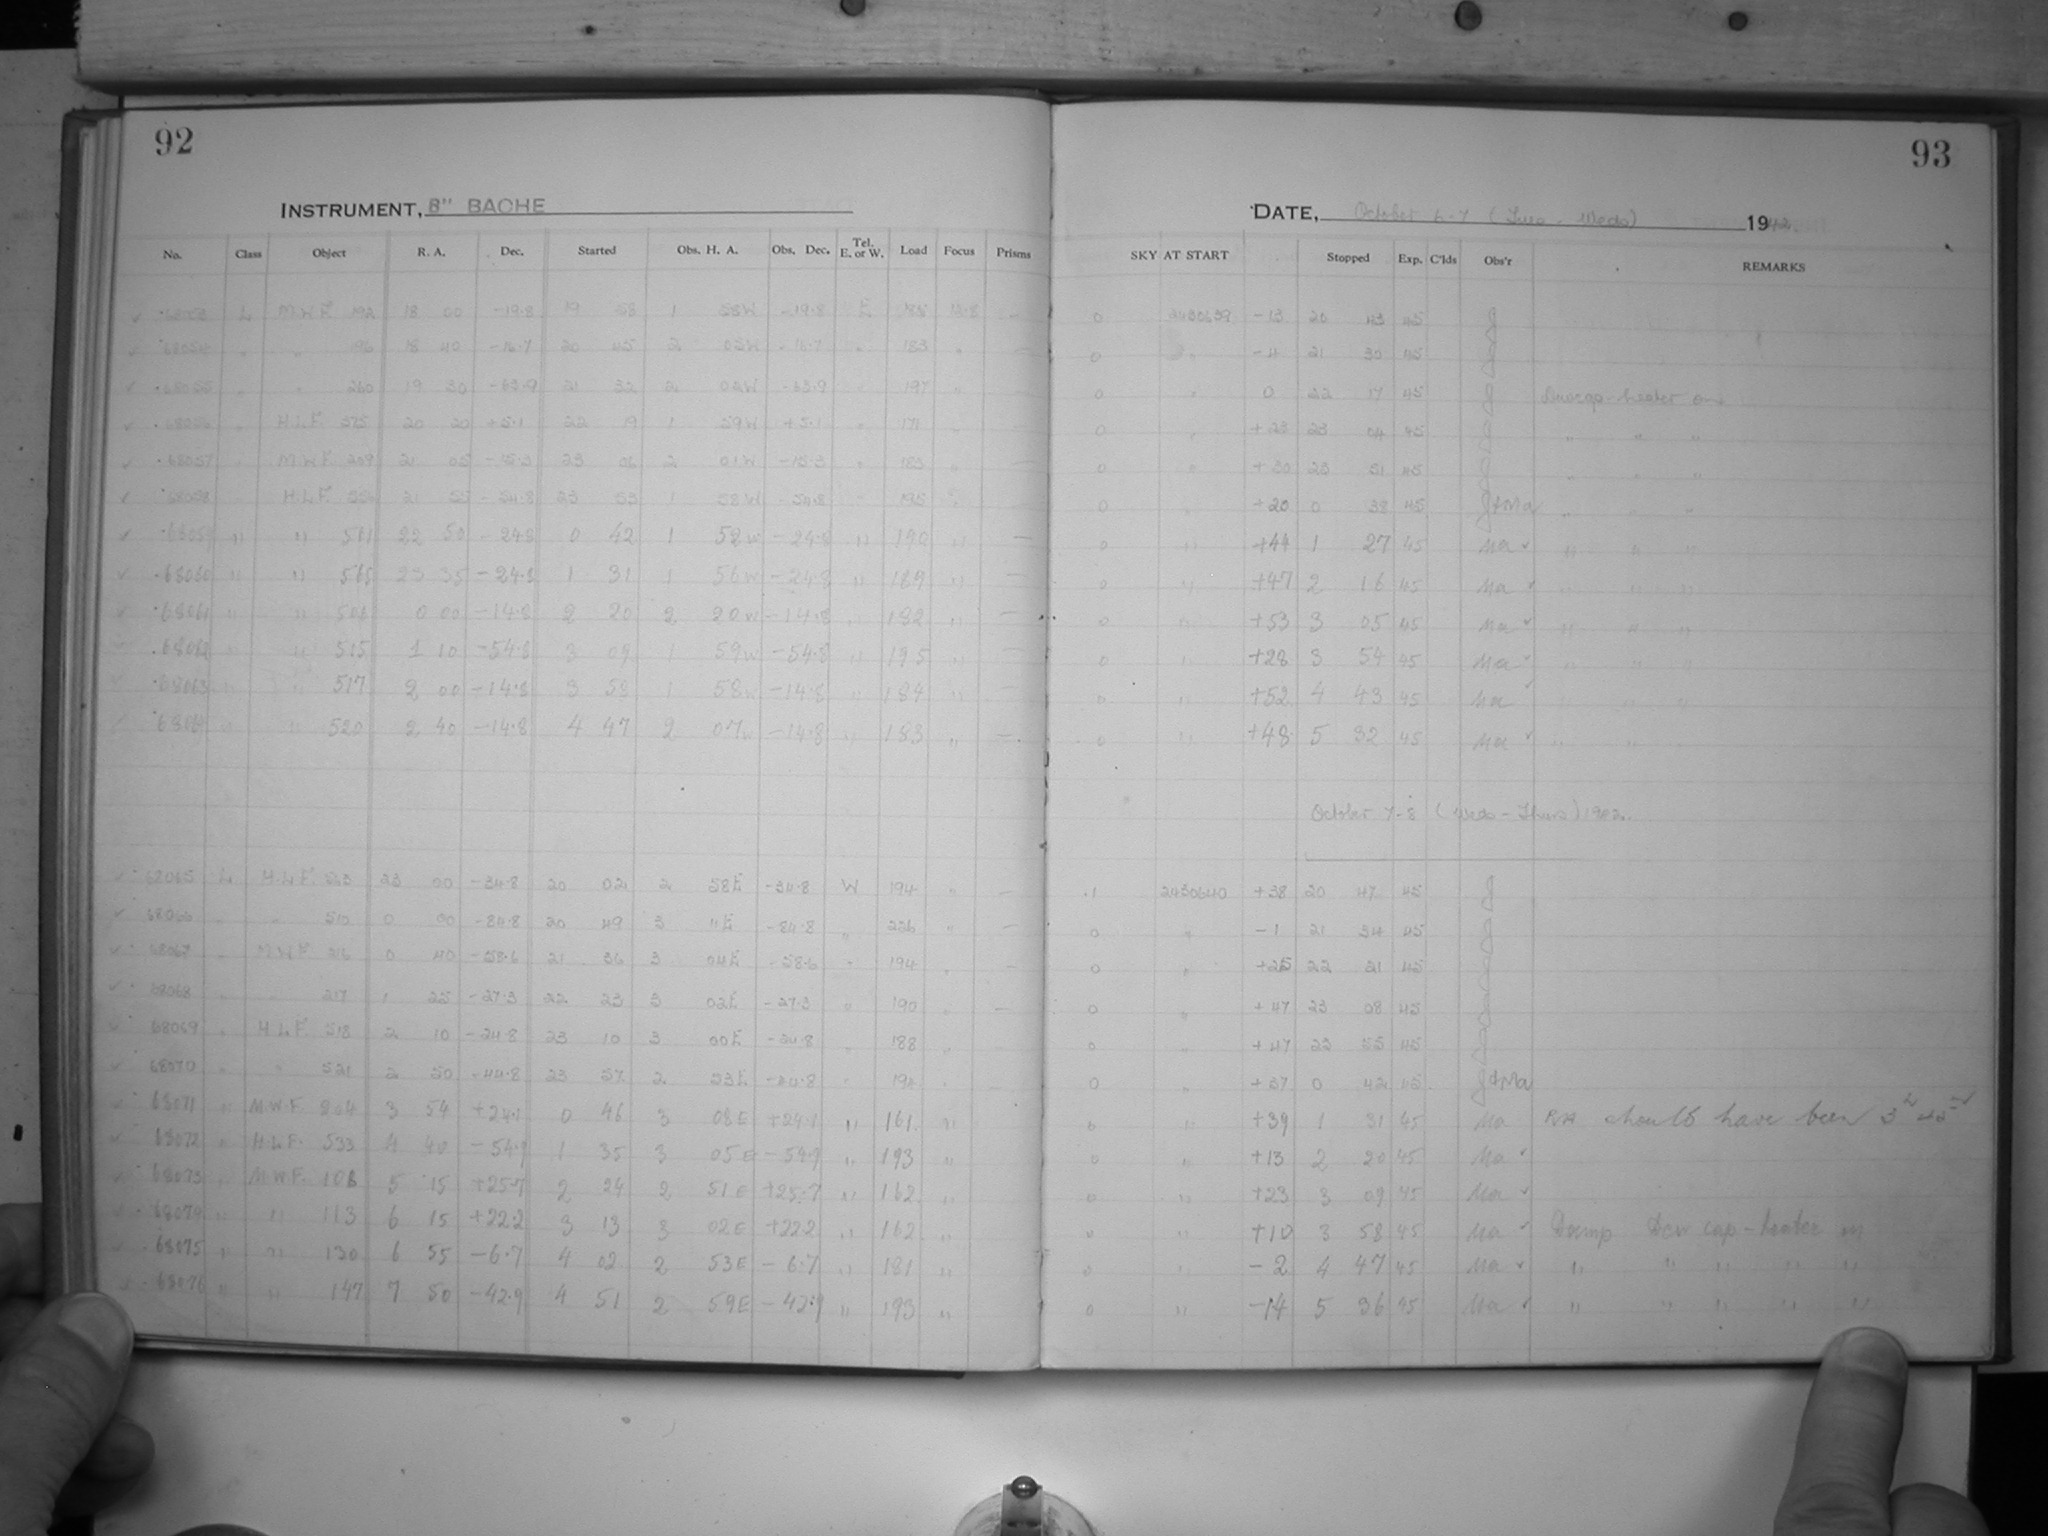 92
INSTRUMENT, 8" BACHE
No. Class Object R. A. Dec. Started Obs. H. A. Obs. Dec. Tel. E. or W. Load Focus Prisms
68053 L M.W.F. 192 18 00 -19.8 19 58 1 58W -19.8 E 185 12.8 -
68054 " " 196 18 40 -16.7 20 45 2 02W -16.7 " 183 " -
68055 " " 260 19 30 -63.9 21 32 2 02W -63.9 " 197 " -
68056 " H.L.F. 575 20 20 +5.1 22 19 1 59W +5.1 " 171 " -
68057 " M.W.F. 209 21 05 -15.3 23 06 2 01W -15.3 " 183 " -
68058 " H.L.F. 21 55 -54.8 23 53 1 58W -54.8 " 195 " -
68059 " " 561 22 50 -24.8 0 42 1 52W -24.8 " 190 " -
68060 " " 565 23 35 -24.8 1 31 1 56W -24.8 " 189 " -
68061 " " 0 00 -14.8 2 20 2 20W -14.8 " 182 " -
68062 " " 515 1 10 -54.8 3 09 1 59W -54.8 " 195 " -
68063 " " 517 2 00 -14.8 3 58 1 58W -14.8 " 184 " -
68064 " " 520 2 40 -14.8 4 47 2 07W -14.8 " 183 " -
68065 L H.L.F. 563 23 00 -34.8 20 02 2 58E -34.8 W 194 " -
68066 " " 510 0 00 -84.8 20 49 3 11E -84.8 " 226 " -
68067 " M.W.F. 216 0 40 -58.6 21 36 3 04E -58.6 " 194 " -
68068 " " 217 1 25 -27.3 22 23 3 02E -27.3 " 190 " -
68069 " H.L.F. 518 2 10 -24.8 23 10 3 00E -24.8 " 188 "
68070 " " 521 2 50 -44.8 23 57 2 53E -44.8 " "
68071 " M.W.F. 264 3 54 +24.1 0 46 3 08E +24.1 " 161 "
68072 " H.L.F. 533 4 40 -54.9 1 35 3 05E -54.9 " 193 "
68073 " M.W.F. 108 5 15 +25.7 2 24 2 51E +25.7 " 162 "
68074 " " 113 6 15 +22.2 3 13 3 02E +22.2 " 162 "
68075 " " 130 6 55 -6.7 4 02 2 53E -6.7 " 181 "
68076 " " 147 7 50 -42.9 4 51 2 59E -42.9 " 193 "
93
DATE, October 6-7 (Tues - Weds) 1942
SKY AT START Stopped Exp. C'lds Obs'r REMARKS
0 2430639 -13 20 43 45 J
0 " -4 21 30 45 J
0 " 0 22 17 45 J Dewcap-heater on
0 " +23 23 04 45 J " " "
0 " +30 23 51 45 J " " "
0 " +20 0 38 45 J+Ma " " "
0 " +44 1 27 45 Ma " " "
0 " +47 2 16 45 Ma " " "
0 " +53 3 05 45 Ma " " "
0 " +28 3 54 45 Ma " " "
0 " +52 4 43 45 Ma " " "
0 " +48 5 32 45 Ma " " "
October 7-8 (Weds - Thurs) 1942.
.1 2430640 +38 20 47 45 J
0 " -1 21 34 45 J
0 " +25 22 21 45 J
0 " +47 23 08 45 J
0 " +47 23 55 45 J
0 " +37 0 42 45 J+Ma
0 " +39 1 31 45 Ma RA should have been 3
0 " +13 2 20 45 Ma
0 " +23 3 09 45 Ma
0 " +10 3 58 45 Ma Damp Dew cap-heater on
0 " -2 4 47 45 Ma " " " " "
0 " -14 5 36 45 Ma " " " " "